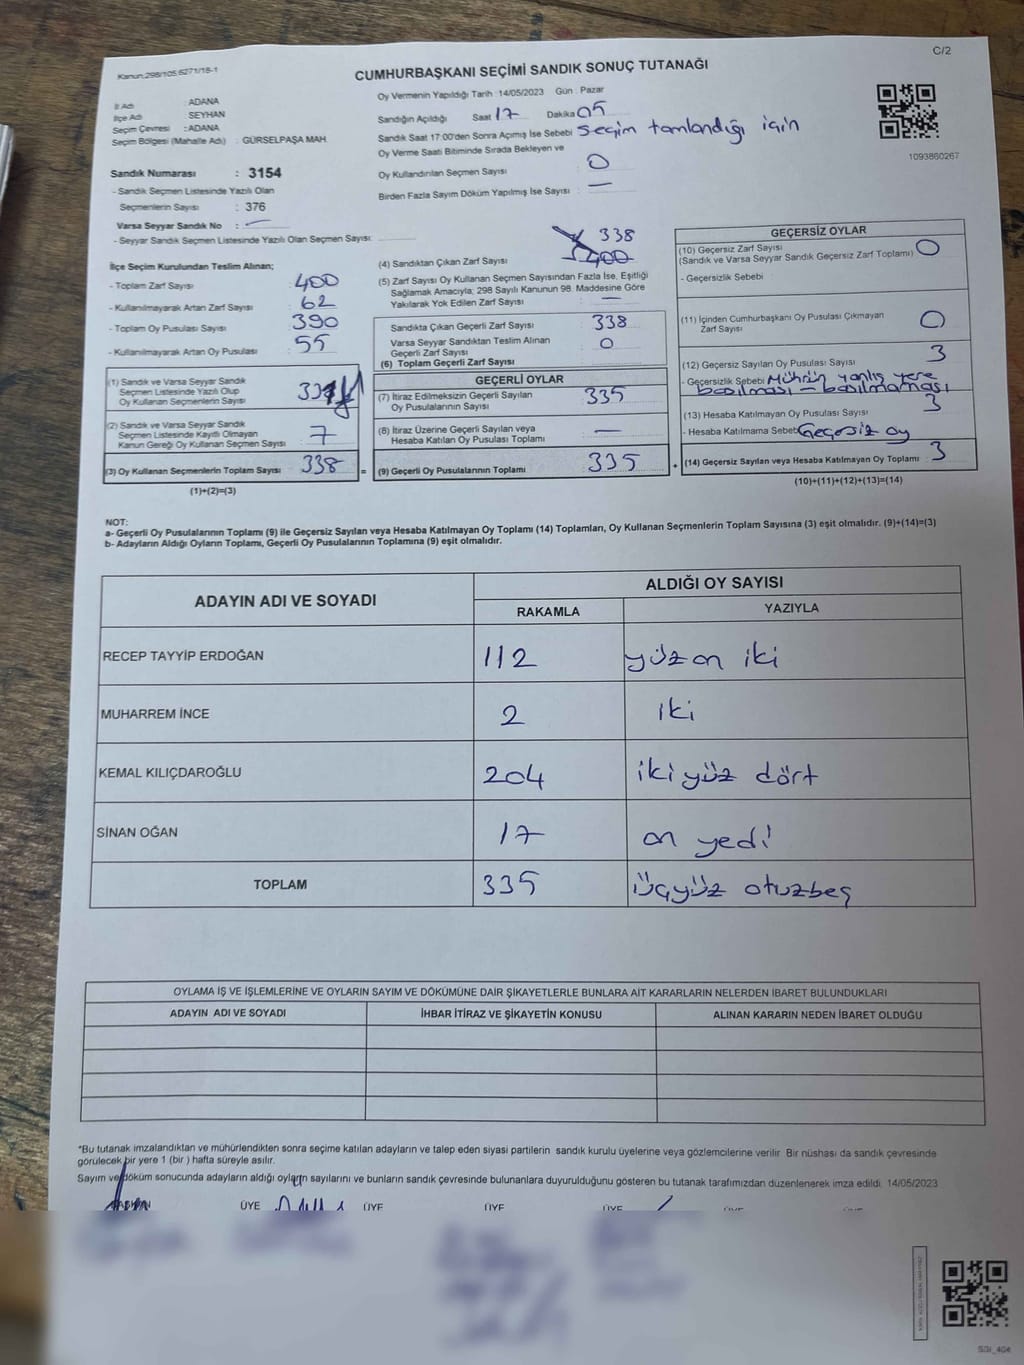 C/2
Kanun:298/105,6271/18-1
CUMHURBAŞKANI SEÇİMİ SANDIK SONUÇ TUTANAĞI
İl Adı : ADANA
İlçe Adı : SEYHAN
Seçim Çevresi : ADANA
Seçim Bölgesi (Mahalle Adı) : GÜRSELPAŞA MAH.
Sandık Numarası : 3154
- Sandık Seçmen Listesinde Yazılı Olan
Seçmenlerin Sayısı : 376
Varsa Seyyar Sandık No : —
- Seyyar Sandık Seçmen Listesinde Yazılı Olan Seçmen Sayısı:
Oy Vermenin Yapıldığı Tarih : 14/05/2023 Gün : Pazar
Sandığın Açıldığı Saat 17 Dakika 05
Sandık Saat 17:00'den Sonra Açımış İse Sebebi Seçim tamlandığı için
Oy Verme Saati Bitiminde Sırada Bekleyen ve
Oy Kullandırılan Seçmen Sayısı : 0
Birden Fazla Sayım Döküm Yapılmış İse Sayısı : —
1093860267
İlçe Seçim Kurulundan Teslim Alınan;
- Toplam Zarf Sayısı : 400
- Kullanılmayarak Artan Zarf Sayısı : 62
- Toplam Oy Pusulası Sayısı : 390
- Kullanılmayarak Artan Oy Pusulası : 55
(1) Sandık ve Varsa Seyyar Sandık
Seçmen Listesinde Yazılı Olup
Oy Kullanan Seçmenlerin Sayısı
(2) Sandık ve Varsa Seyyar Sandık
Seçmen Listesinde Kayıtlı Olmayan
Kanun Gereği Oy Kullanan Seçmen Sayısı : 7
(3) Oy Kullanan Seçmenlerin Toplam Sayısı 338 =
(1)+(2)=(3)
338
(4) Sandıktan Çıkan Zarf Sayısı : 400
(5) Zarf Sayısı Oy Kullanan Seçmen Sayısından Fazla İse, Eşitliği
Sağlamak Amacıyla; 298 Sayılı Kanunun 98. Maddesine Göre
Yakılarak Yok Edilen Zarf Sayısı : —
Sandıkta Çıkan Geçerli Zarf Sayısı : 338
Varsa Seyyar Sandıktan Teslim Alınan
Geçerli Zarf Sayısı : 0
(6) Toplam Geçerli Zarf Sayısı
GEÇERLİ OYLAR
(7) İtiraz Edilmeksizin Geçerli Sayılan
Oy Pusulalarının Sayısı : 335
(8) İtiraz Üzerine Geçerli Sayılan veya
Hesaba Katılan Oy Pusulası Toplamı : —
(9) Geçerli Oy Pusulalarının Toplamı : 335 +
GEÇERSİZ OYLAR
(10) Geçersiz Zarf Sayısı
(Sandık ve Varsa Seyyar Sandık Geçersiz Zarf Toplamı) : 0
- Geçersizlik Sebebi
(11) İçinden Cumhurbaşkanı Oy Pusulası Çıkmayan
Zarf Sayısı : 0
(12) Geçersiz Sayılan Oy Pusulası Sayısı : 3
- Geçersizlik Sebebi Mührün yanlış yere
basılması - basılmaması
(13) Hesaba Katılmayan Oy Pusulası Sayısı : 3
- Hesaba Katılmama Sebebi Geçersiz oy
(14) Geçersiz Sayılan veya Hesaba Katılmayan Oy Toplamı 3
(10)+(11)+(12)+(13)=(14)
NOT:
a- Geçerli Oy Pusulalarının Toplamı (9) ile Geçersiz Sayılan veya Hesaba Katılmayan Oy Toplamı (14) Toplamları, Oy Kullanan Seçmenlerin Toplam Sayısına (3) eşit olmalıdır. (9)+(14)=(3)
b- Adayların Aldığı Oyların Toplamı, Geçerli Oy Pusulalarının Toplamına (9) eşit olmalıdır.
ADAYIN ADI VE SOYADI ALDIĞI OY SAYISI
RAKAMLA YAZIYLA
RECEP TAYYİP ERDOĞAN 112 yüz on iki
MUHARREM İNCE 2 iki
KEMAL KILIÇDAROĞLU 204 iki yüz dört
SİNAN OĞAN 17 on yedi
TOPLAM 335 üçyüz otuzbeş
OYLAMA İŞ VE İŞLEMLERİNE VE OYLARIN SAYIM VE DÖKÜMÜNE DAİR ŞİKAYETLERLE BUNLARA AİT KARARLARIN NELERDEN İBARET BULUNDUKLARI
ADAYIN ADI VE SOYADI İHBAR İTİRAZ VE ŞİKAYETİN KONUSU ALINAN KARARIN NEDEN İBARET OLDUĞU
*Bu tutanak imzalandıktan ve mühürlendikten sonra seçime katılan adayların ve talep eden siyasi partilerin sandık kurulu üyelerine veya gözlemcilerine verilir. Bir nüshası da sandık çevresinde
görülecek bir yere 1 (bir ) hafta süreyle asılır.
Sayım ve döküm sonucunda adayların aldığı oyların sayılarını ve bunların sandık çevresinde bulunanlara duyurulduğunu gösteren bu tutanak tarafımızdan düzenlenerek imza edildi. 14/05/2023
BAŞKAN ÜYE ÜYE ÜYE ÜYE